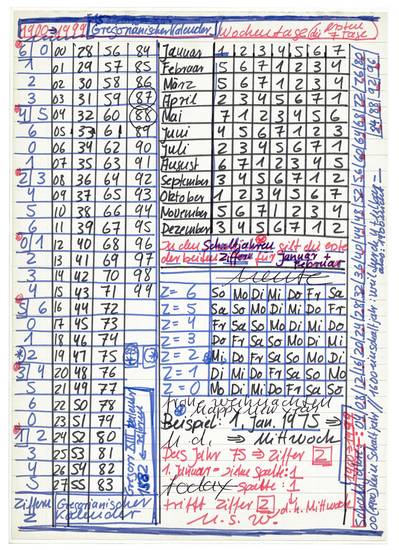 1900 ⇒ 1999 Gregorianischer Kalender Wochentage (die ersten 7 Tage)
6 0 00 28 56 84 Januar 1 2 3 4 5 6 7
1 01 29 57 85 Februar 5 6 7 1 2 3 4
2 02 30 58 86 März 5 6 7 1 2 3 4
3 03 31 59 87 April 2 3 4 5 6 7 1
4 5 04 32 60 88 Mai 7 1 2 3 4 5 6
6 05 33 61 89 Juni 4 5 6 7 1 2 3
0 06 34 62 90 Juli 2 3 4 5 6 7 1
1 07 35 63 91 August 6 7 1 2 3 4 5
2 3 08 36 64 92 September 3 4 5 6 7 1 2
4 09 37 65 93 Oktober 1 2 3 4 5 6 7
5 10 38 66 94 November 5 6 7 1 2 3 4
6 11 39 67 95 Dezember 3 4 5 6 7 1 2
0 1 12 40 68 96 In den Schaltjahren gilt die erste
2 13 41 69 97 der beiden Ziffern für Januar + Februar
3 14 42 70 98 heute
4 15 43 71 99
5 6 16 44 72 Z = 6 So Mo Di Mi Do Fr Sa
0 17 45 73 Z = 5 Sa So Mo Di Mi Do Fr
1 18 46 74 Z = 4 Fr Sa So Mo Di Mi Do
2 19 47 75 Z = 3 Do Fr Sa So Mo Di Mi
3 4 20 48 76 Z = 2 Mi Do Fr Sa So Mo Di
5 21 49 77 Z = 1 Di Mi Do Fr Sa So Mo
6 22 50 78 Z = 0 Mo Di Mi Do Fr Sa So
0 23 51 79
1 2 24 52 80
3 25 53 81
4 26 54 82
5 27 55 83
Ziffern Z Gregorianischer Kalender
Gregor XIII
1582
frohe Weihnachten
Happy New Year
Beispiel: 1. Jan. 1975 ⇒
M. d. ⇒ Mittwoch
Das Jahr 75 ⇒ Ziffer 2
1. Januar = siehe Spalte: 1
today Spalte: 1
trifft Ziffer 2, d.h. Mittwoch
U. S. W.
1900 ⇒ 1999
Schaltjahre: 04 08 12 16 20 24 28 32 36 40 44 48 52 56 60 64 68 72 76 80
84 88 92 96
00 (1900) kein Schaltjahr